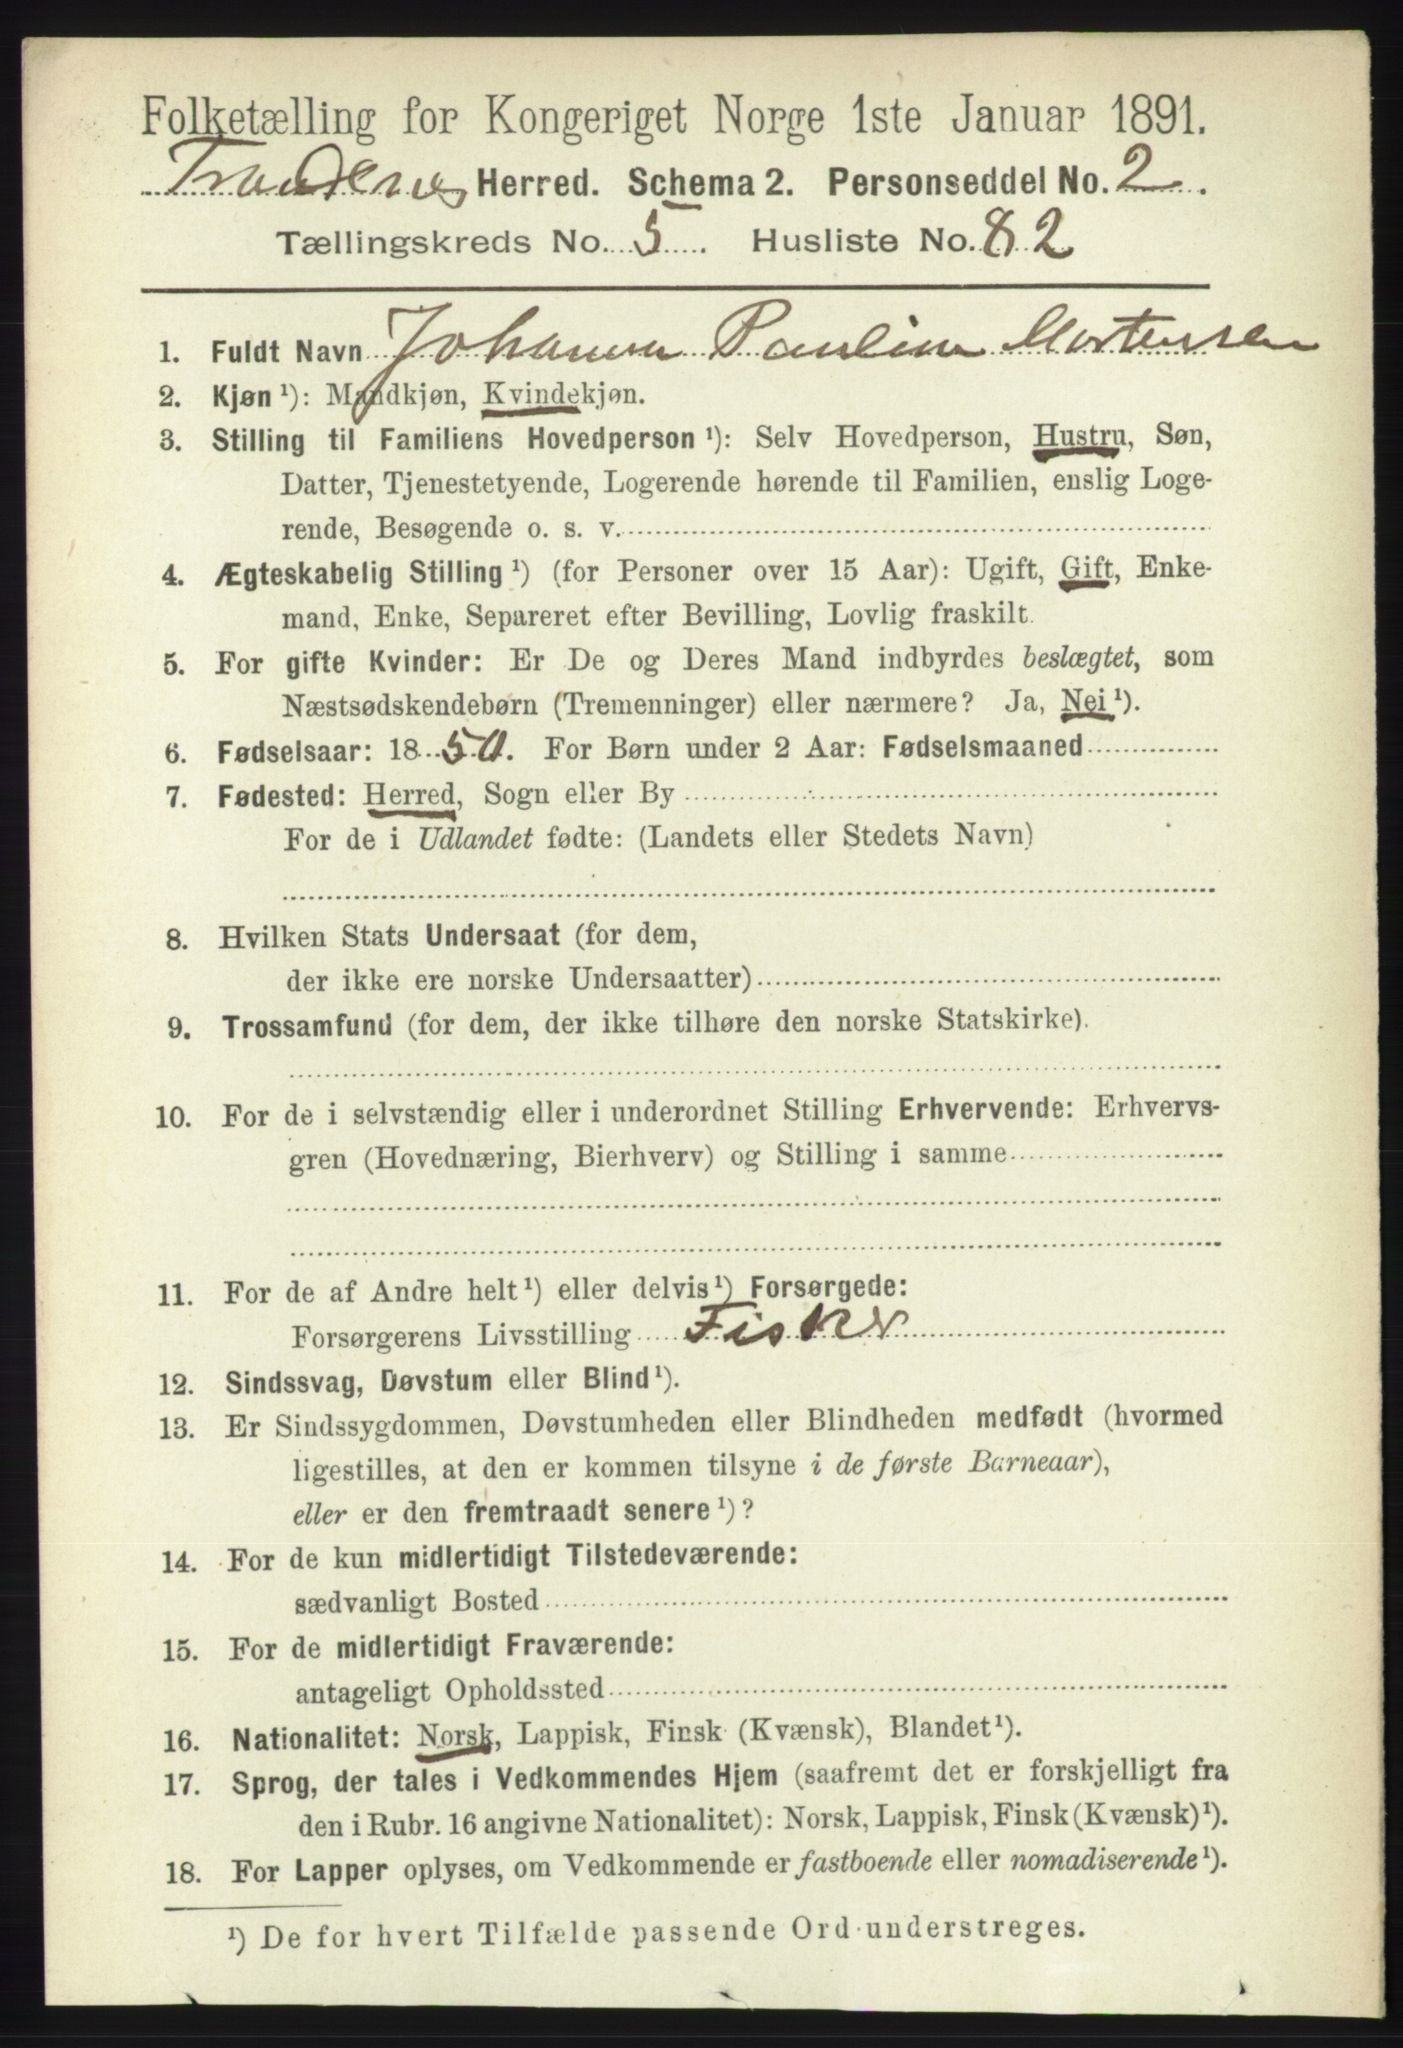 Folketælling for Kongeriget Norge 1ste Januar 1891.
Trondenes Herred. Schema 2. Personseddel No. 2.
Tællingskreds No. 5. Husliste No. 82
1. Fuldt Navn Johanna Pauline Mortensen
2. Kjøn ¹): Mandkjøn, Kvindekjøn.
3. Stilling til Familiens Hovedperson ¹): Selv Hovedperson, Hustru, Søn,
Datter, Tjenestetyende, Logerende hørende til Familien, enslig Loge-
rende, Besøgende o. s. v.
4. Ægteskabelig Stilling ¹) (for Personer over 15 Aar): Ugift, Gift, Enke-
mand, Enke, Separeret efter Bevilling, Lovlig fraskilt.
5. For gifte Kvinder: Er De og Deres Mand indbyrdes beslægtet, som
Næstsødskendebørn (Tremenninger) eller nærmere? Ja, Nei ¹).
6. Fødselsaar: 1850. For Børn under 2 Aar: Fødselsmaaned
7. Fødested: Herred, Sogn eller By
For de i Udlandet fødte: (Landets eller Stedets Navn)
8. Hvilken Stats Undersaat (for dem,
der ikke ere norske Undersaatter)
9. Trossamfund (for dem, der ikke tilhøre den norske Statskirke).
10. For de i selvstændig eller i underordnet Stilling Erhvervende: Erhvervs-
gren (Hovednæring, Bierhverv) og Stilling i samme
11. For de af Andre helt ¹) eller delvis ¹) Forsørgede:
Forsørgerens Livsstilling Fisker
12. Sindssvag, Døvstum eller Blind ¹).
13. Er Sindssygdommen, Døvstumheden eller Blindheden medfødt (hvormed
ligestilles, at den er kommen tilsyne i de første Barneaar),
eller er den fremtraadt senere ¹)?
14. For de kun midlertidigt Tilstedeværende:
sædvanligt Bosted
15. For de midlertidigt Fraværende:
antageligt Opholdssted
16. Nationalitet: Norsk, Lappisk, Finsk (Kvænsk), Blandet ¹).
17. Sprog, der tales i Vedkommendes Hjem (saafremt det er forskjelligt fra
den i Rubr. 16 angivne Nationalitet): Norsk, Lappisk, Finsk (Kvænsk) ¹).
18. For Lapper oplyses, om Vedkommende er fastboende eller nomadiserende ¹).
¹) De for hvert Tilfælde passende Ord understreges.